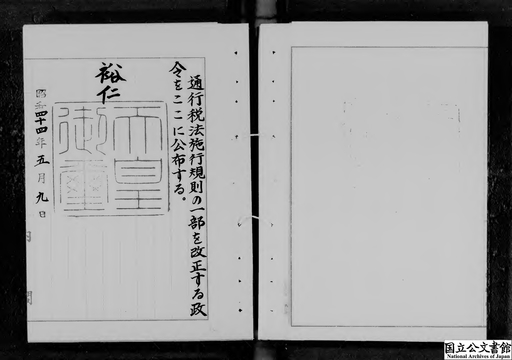 通行税法施行規則の一部を改正する政
令をここに公布する。
裕仁
天皇
御璽
昭和四十四年五月九日
国立公文書館
National Archives of Japan